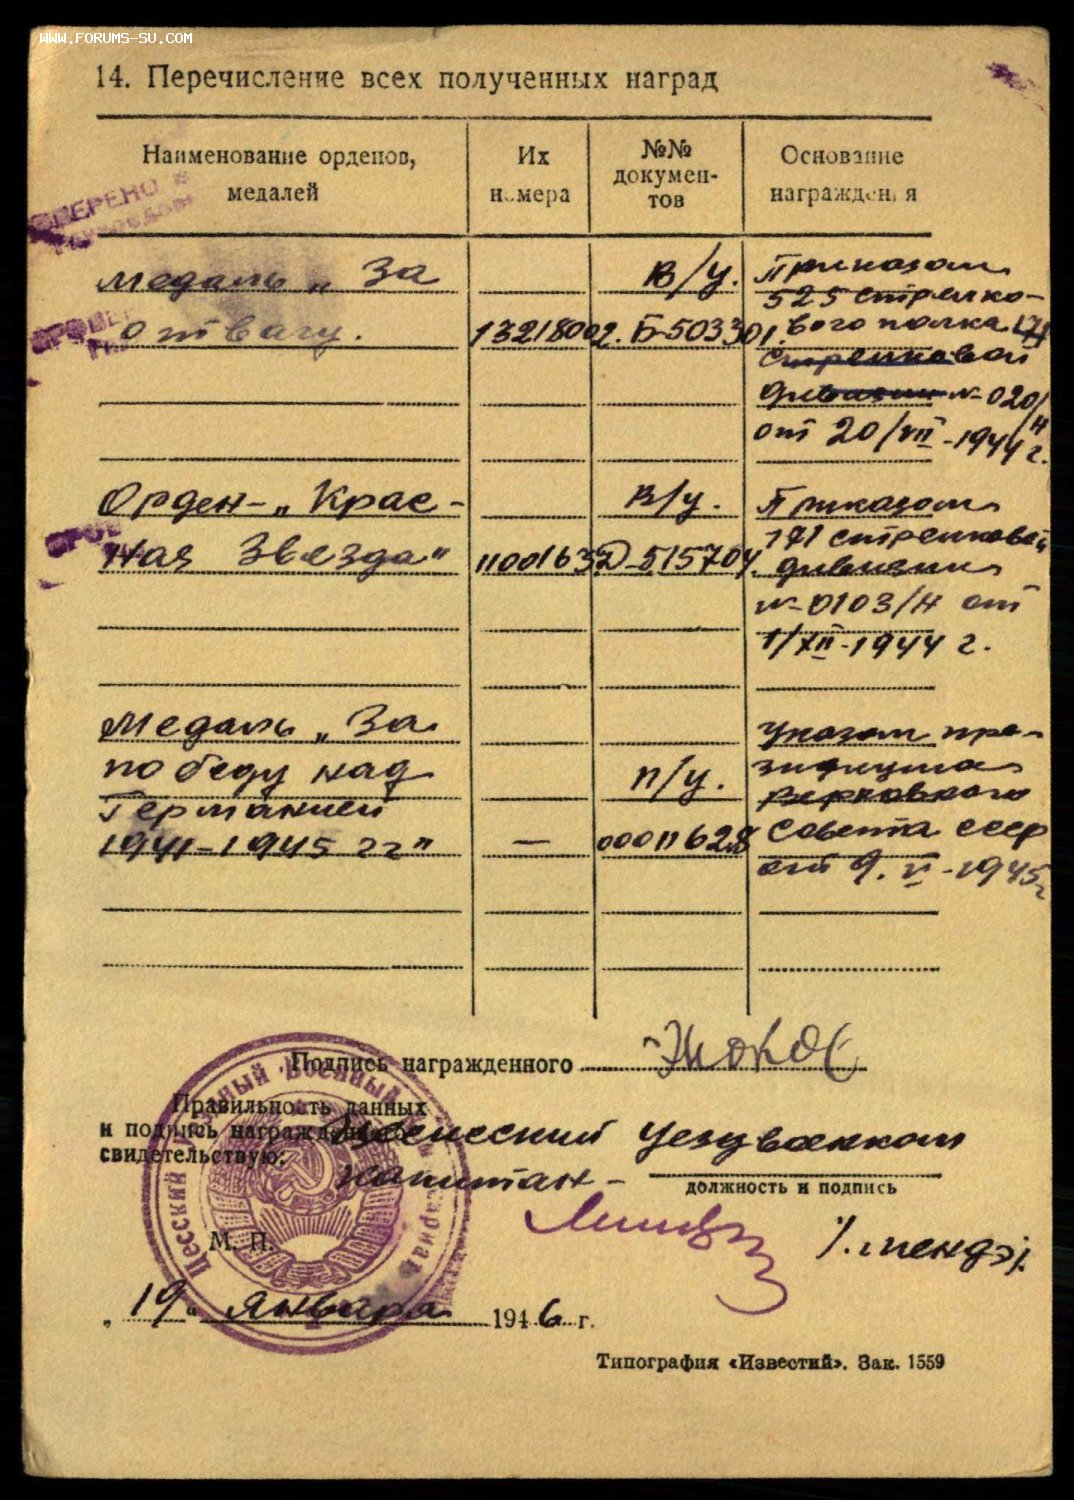 WWW.FORUMS-SU.COM
14. Перечисление всех полученных наград
Наименование орденов, медалей
Их номера
№№ документов
Основание награждения
Медаль „За
отвагу.
1321800
в/у.
2. Б-503301.
Приказом
525 стрелко-
вого полка 171
стрелковой
дивизии № 020/н
от 20/VII-1944 г.
Орден-„Крас-
ная Звезда"
1100163
в/у.
Д-515704.
Приказом
171 стрелковой
дивизии
№-0103/н от
1/XII-1944 г.
Медаль „За
победу над
Германией
1941-1945 гг"
—
п/у.
0001162.8
Указом пре-
зидиума
Верховного
Совета СССР
от 9.V-1945г
Подпись награжденного
Правильность данных
и подпись награжденного
свидетельствую:
Цесисский уездвоенком
капитан-
должность и подпись
М. П.
„19" января 1946 г.
Типография «Известий». Зак. 1559